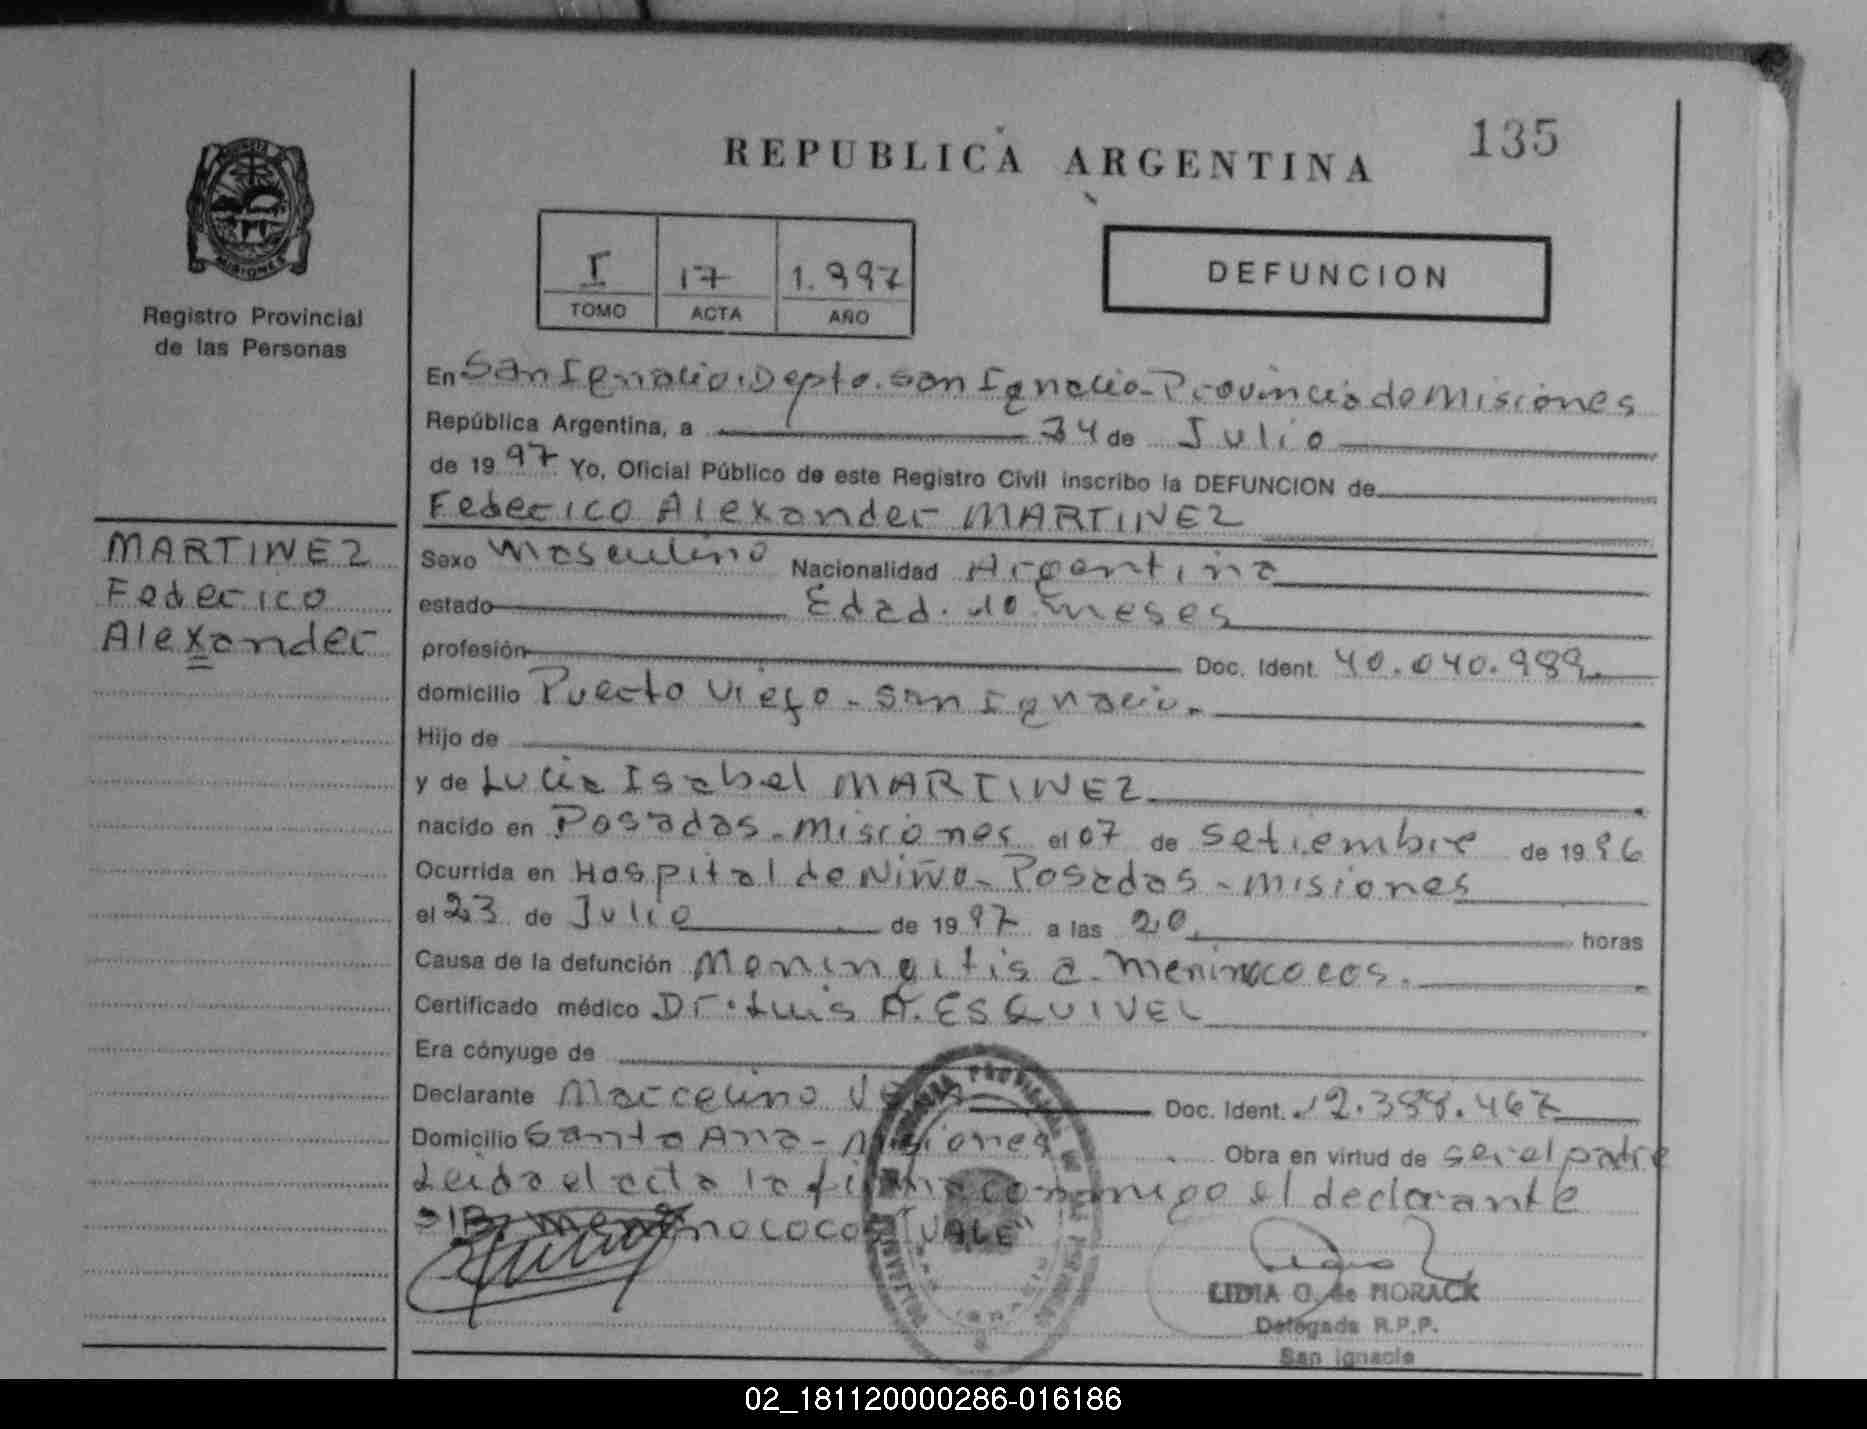 135
REPUBLICA ARGENTINA
I 17 1.997
TOMO ACTA AÑO
DEFUNCION
MISIONES
Registro Provincial
de las Personas
MARTINEZ
Federico
Alexander
En San Ignacio. Depto. San Ignacio - Provincia de Misiones
República Argentina, a 24 de Julio
de 1997 Yo, Oficial Público de este Registro Civil inscribo la DEFUNCION de
Federico Alexander MARTINEZ
Sexo Masculino Nacionalidad Argentina
estado Edad. 10 meses
profesión Doc. Ident. 40.040.989.
domicilio Puerto Viejo - San Ignacio.
Hijo de
y de Lucia Isabel MARTINEZ
nacido en Posadas - Misiones el 07 de Setiembre de 1996
Ocurrida en Hospital de Niño - Posadas - Misiones
el 23 de Julio de 1997 a las 20 horas
Causa de la defunción Meningitis a meninococos.
Certificado médico Dr. Luis A. ESQUIVEL
Era cónyuge de
Declarante Marcelino Doc. Ident. 12.388.467
Domicilio Santa Ana - Misiones Obra en virtud de ser el padre
Leida el acta la firma conmigo el declarante
"VALE"
LIDIA O. de MORACK
Delegada R.P.P.
San Ignacio
02_181120000286-016186